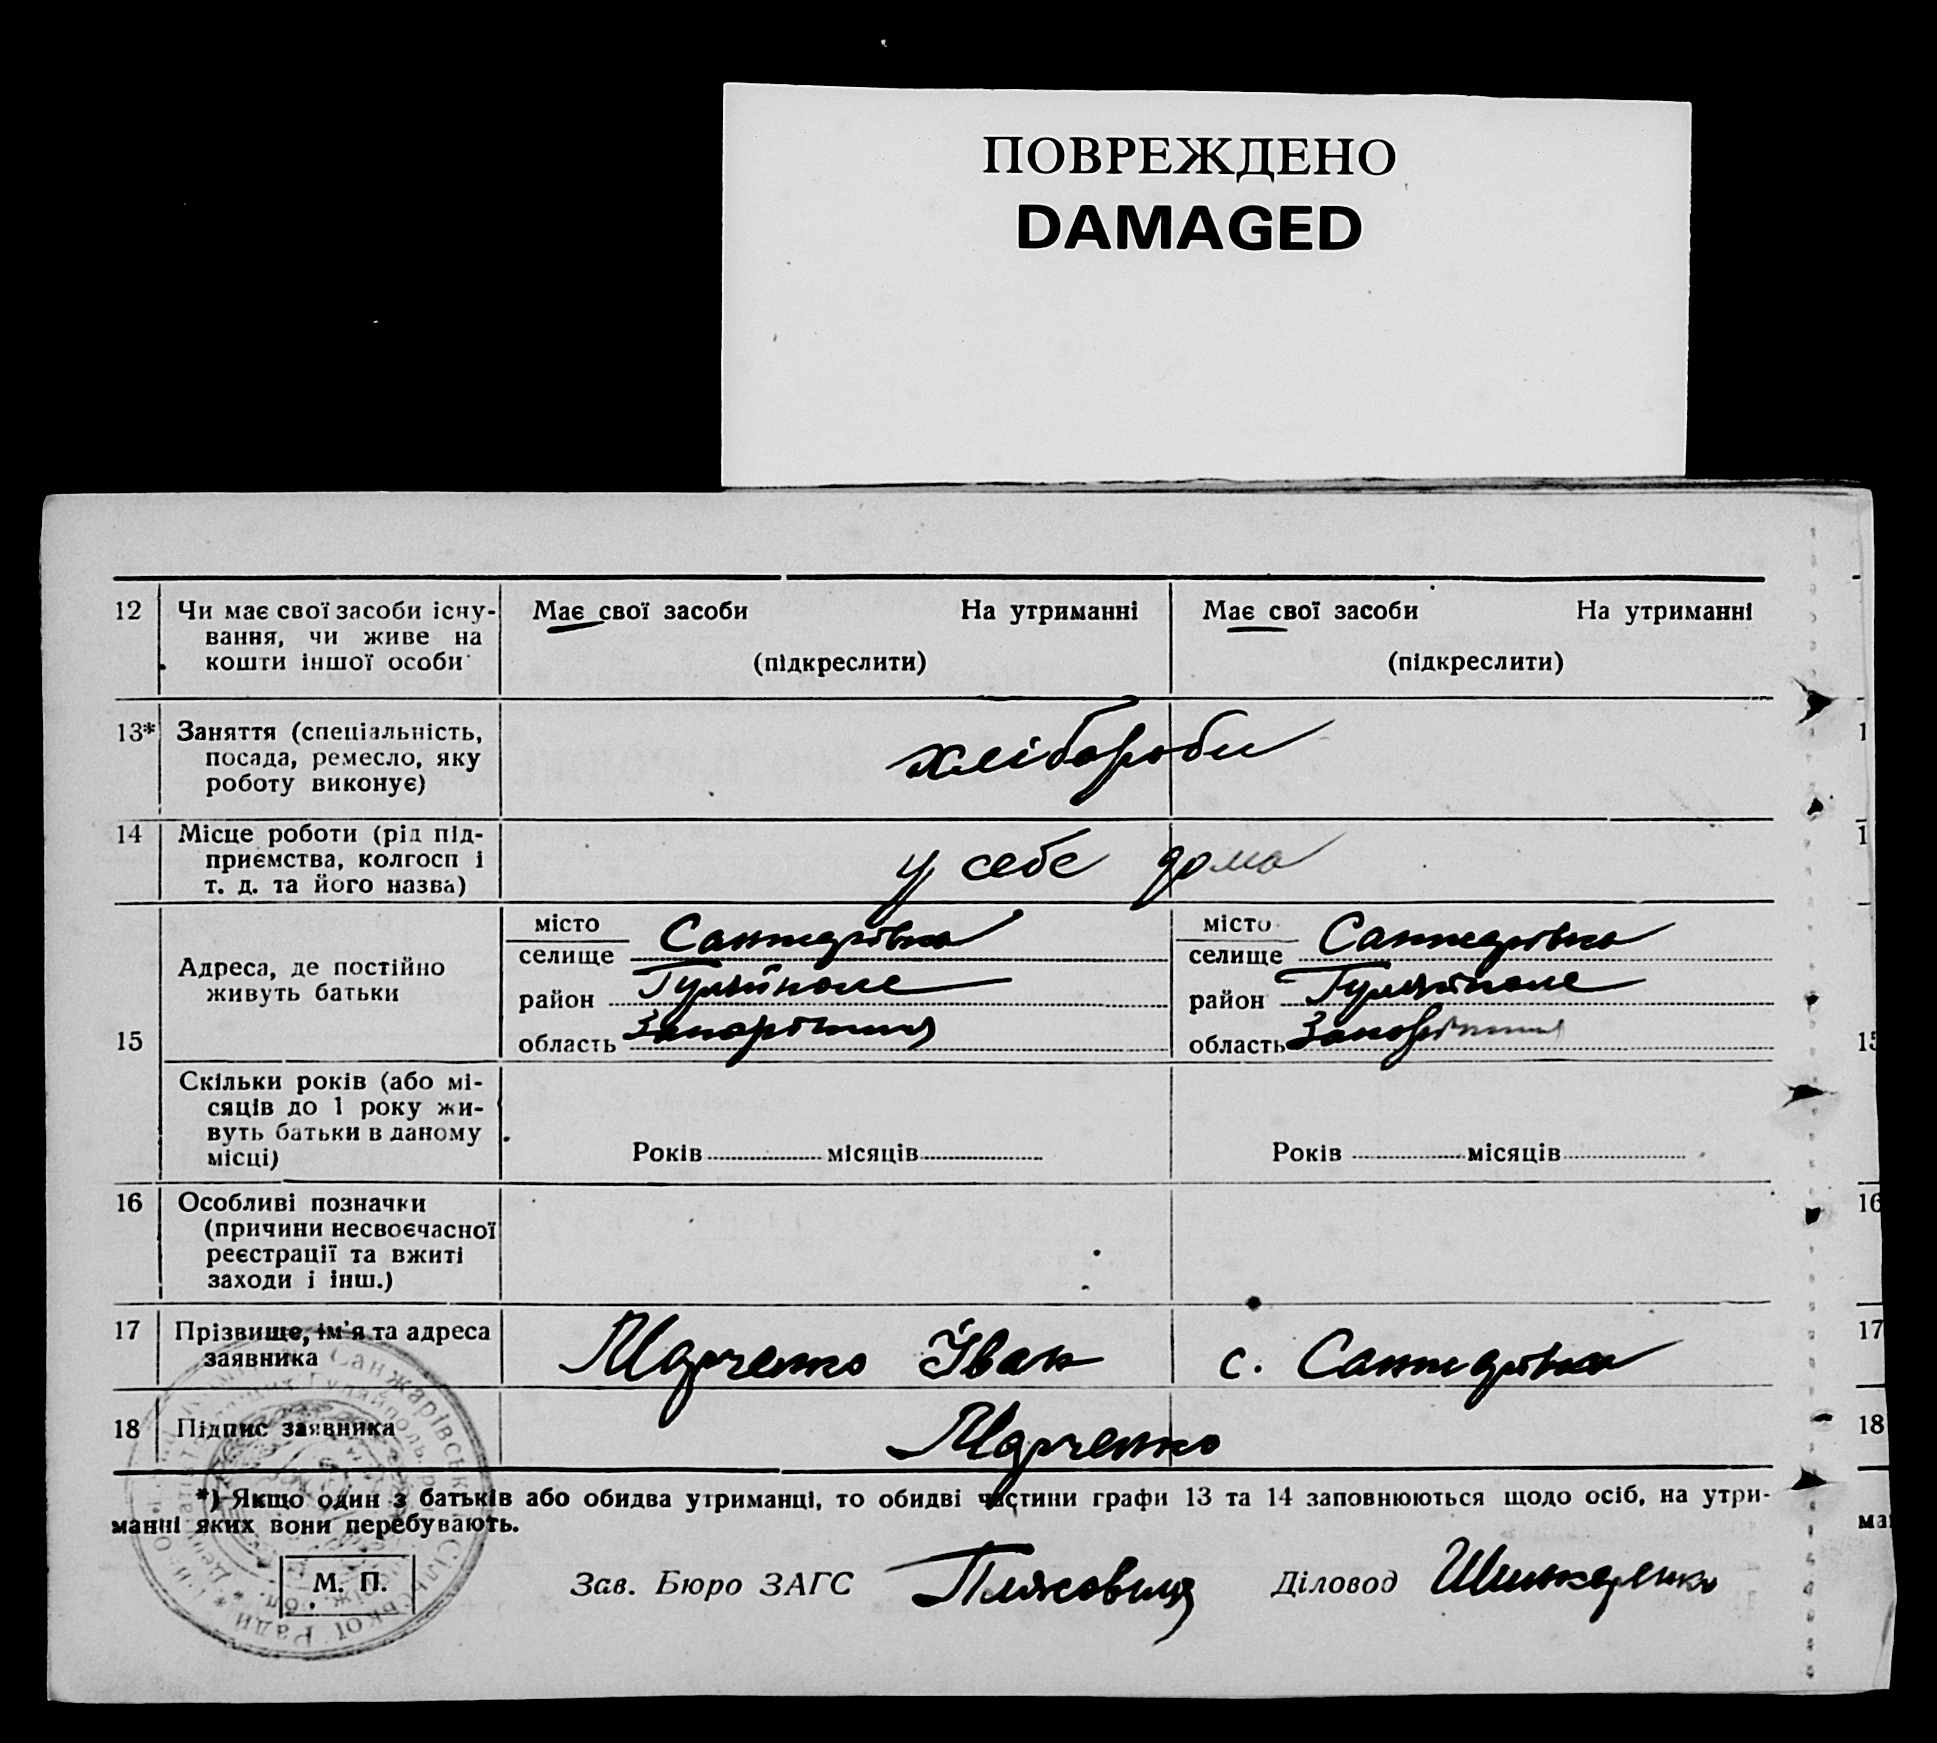 ПОВРЕЖДЕНО
DAMAGED
12 Чи має свої засоби існу-
вання, чи живе на
кошти іншої особи
Має свої засоби На утриманні
(підкреслити)
Має свої засоби На утриманні
(підкреслити)
13* Заняття (спеціальність,
посада, ремесло, яку
роботу виконує)
хлібороби
14 Місце роботи (рід під-
приємства, колгосп і
т. д. та його назва)
у себе дома
15
Адреса, де постійно
живуть батьки
місто
селище Санжарівка
район Гуляйполе
область
місто
селище Санжарівка
район Гуляйполе
область
Скільки років (або мі-
сяців до 1 року жи-
вуть батьки в даному
місці)
Років місяців
Років місяців
16 Особливі позначки
(причини несвоєчасної
реєстрації та вжиті
заходи і інш.)
17 Прізвище, ім'я та адреса
заявника
Марченко Іван с. Санжарівка
18 Підпис заявника
Марченко
*) Якщо один з батьків або обидва утриманці, то обидві частини графи 13 та 14 заповнюються щодо осіб, на утри-
манні яких вони перебувають.
М. П.
Зав. Бюро ЗАГС
Діловод Шинкаренко
Санжарівської Сільської Ради
1
1
15
16
17
18
ма